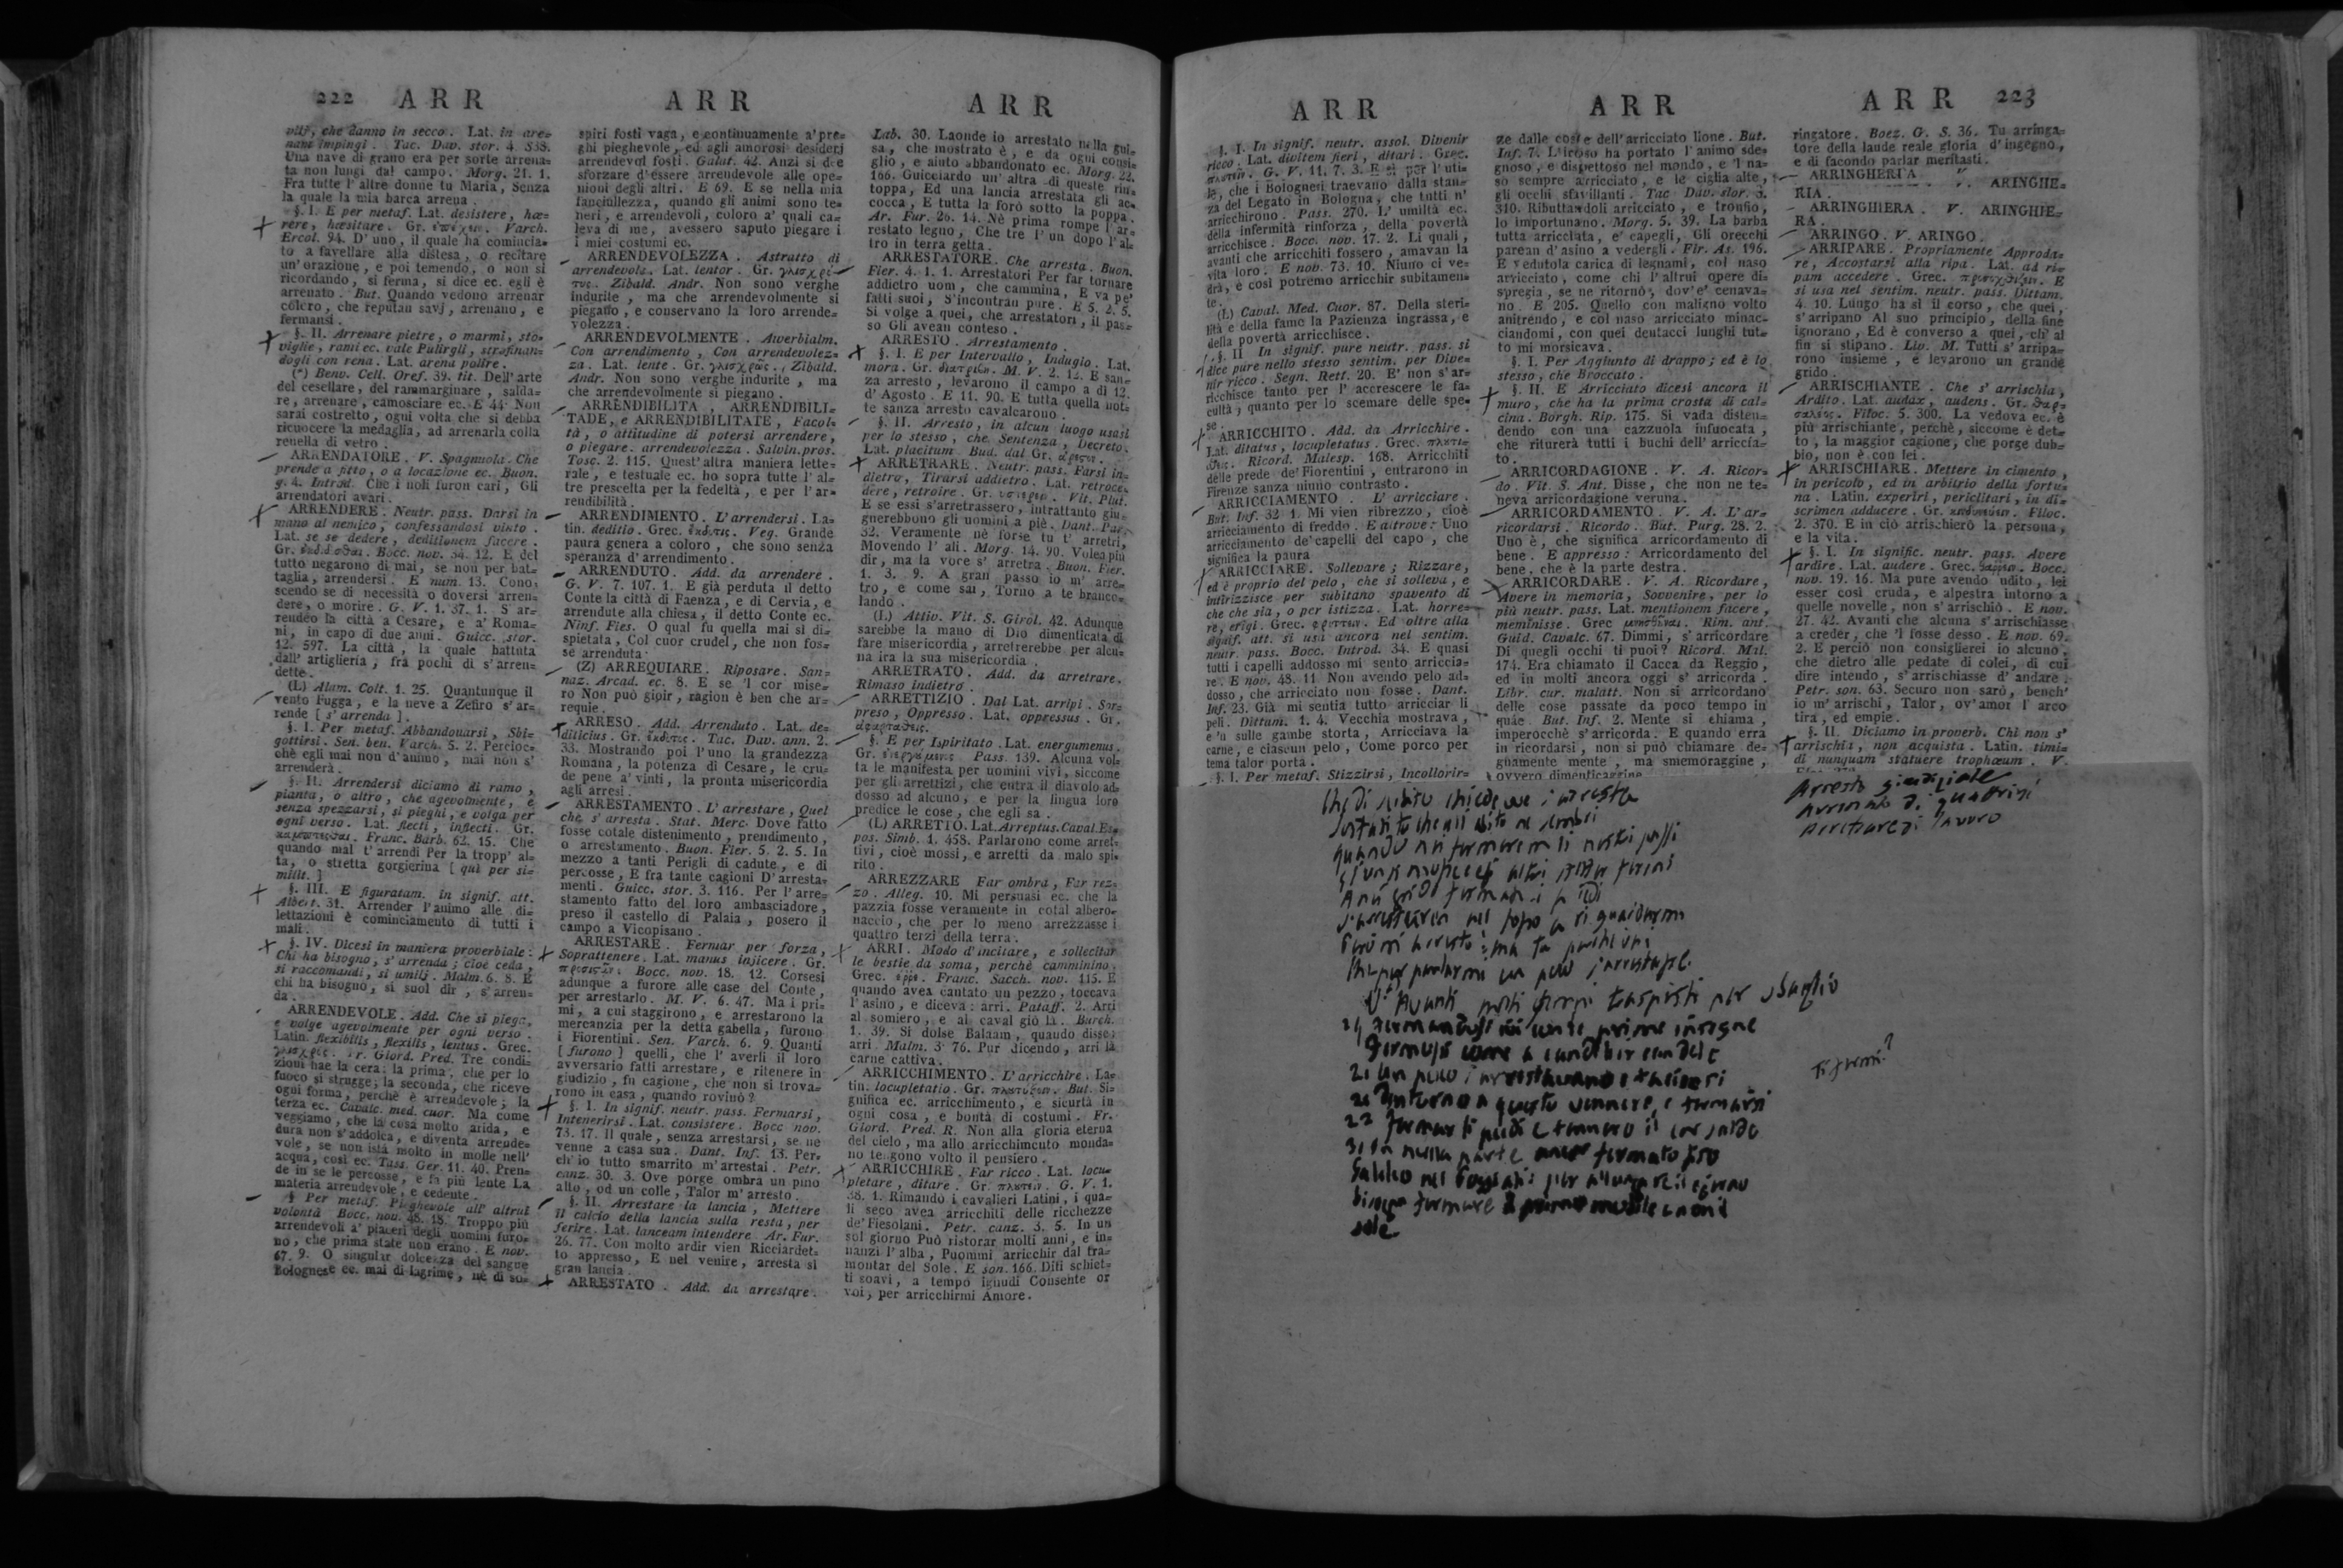 222 ARR ARR ARR
vilj, che danno in secco. Lat. in are=
nam impingi. Tac. Dav. stor. 4 338.
Una nave di grano era per sorte arrena=
ta non lungi dal campo. Morg. 21. 1.
Fra tutte l'altre donne tu Maria, Senza
la quale la mia barca arrena.
§. I. E per metaf. Lat. desistere, hæ=
rere, hæsitare. Gr. Varch.
Ercol. 94. D'uno, il quale ha comincia=
to a favellare alla distesa, o recitare
un'orazione, e poi temendo, o non si
ricordando, si ferma, si dice ec. egli è
arrenato. But. Quando vedono arrenar
coloro, che reputan savj, arrenano, e
fermansi.
§. II. Arrenare pietre, o marmi, sto=
viglie, rami ec. vale Pulirgli, strofinan=
dogli con rena. Lat. arena polire.
(*) Benv. Cell. Oref. 39. tit. Dell'arte
del cesellare, del rammarginare, salda=
re, arrenare, camosciare ec. E 44. Non
sarai costretto, ogni volta che si debba
ricuocere la medaglia, ad arrenarla colla
renella di vetro.
ARRENDATORE. V. Spagnuola. Che
prende a fitto, o a locazione ec. Buon.
g. 4. Introd. Che i noli furon cari, Gli
arrendatori avari.
ARRENDERE. Neutr. pass. Darsi in
mano al nemico, confessandosi vinto.
Lat. se se dedere, deditionem facere.
Gr. Bocc. nov. 34. 12. E del
tutto negarono di mai, se non per bat=
taglia, arrendersi. E num. 13. Cono=
scendo se di necessità o doversi arren=
dere, o morire. G. V. 1. 37. 1. S'ar=
rendeo la città a Cesare, e a' Roma=
ni, in capo di due anni. Guicc. stor.
12. 597. La città, la quale battuta
dall'artiglieria, fra pochi dì s'arren=
dette.
(L) Alam. Colt. 1. 25. Quantunque il
vento Fugga, e la neve a Zefiro s'ar=
rende [s'arrenda].
§. I. Per metaf. Abbandonarsi, Sbi=
gottirsi. Sen. ben. Varch. 5. 2. Percioc=
chè egli mai non d'animo, mai non s'
arrenderà.
§. II. Arrendersi diciamo di ramo,
pianta, o altro, che agevolmente, e
senza spezzarsi, si pieghi, e volga per
ogni verso. Lat. flecti, inflecti. Gr.
Franc. Barb. 62. 15. Che
quando mal t'arrendi Per la tropp'al=
ta, o stretta gorgierina [quì per si=
milit.]
§. III. E figuratam. in signif. att.
Albert. 31. Arrender l'animo alle di=
lettazioni è cominciamento di tutti i
mali.
§. IV. Dicesi in maniera proverbiale:
Chi ha bisogno, s'arrenda; cioè ceda,
si raccomandi, si umilj. Malm. 6. 8. E
chi ha bisogno, si suol dir, s'arren=
da.
ARRENDEVOLE. Add. Che si piega,
e volge agevolmente per ogni verso.
Latin. flexibilis, flexilis, lentus. Grec.
Fr. Giord. Pred. Tre condi=
zioni hae la cera: la prima, che per lo
fuoco si strugge; la seconda, che riceve
ogni forma, perchè è arrendevole; la
terza ec. Cavalc. med. cuor. Ma come
veggiamo, che la cosa molto arida, e
dura non s'addolca, e diventa arrende=
vole, se non istà molto in molle nell'
acqua, così ec. Tass. Ger. 11. 40. Pren=
de in se le percosse, e fa più lente La
materia arrendevole, e cedente.
§ Per metaf. Pieghevole all'altrui
volontà Bocc. nov. 48. 18. Troppo più
arrendevoli a' piaceri degli uomini furo=
no, che prima state non erano. E nov.
67. 9. O singular dolcezza del sangue
Bolognese ec. mai di lagrime, nè di so=
spiri fosti vaga, e continuamente a' pre=
ghi pieghevole, ed agli amorosi desiderj
arrendevol fosti. Galat. 42. Anzi si dee
sforzare d'essere arrendevole alle ope=
nioni degli altri. E 69. E se nella mia
fanciullezza, quando gli animi sono te=
neri, e arrendevoli, coloro a' quali ca=
leva di me, avessero saputo piegare i
i miei costumi ec.
ARRENDEVOLEZZA. Astratto di
arrendevole. Lat. lentor. Gr.
Zibald. Andr. Non sono verghe
indurite, ma che arrendevolmente si
piegano, e conservano la loro arrende=
volezza.
ARRENDEVOLMENTE. Avverbialm.
Con arrendimento, Con arrendevolez=
za. Lat. lente. Gr. Zibald.
Andr. Non sono verghe indurite, ma
che arrendevolmente si piegano.
ARRENDIBILITÀ, ARRENDIBILI=
TADE, e ARRENDIBILITATE, Facol=
tà, o attitudine di potersi arrendere,
o piegare. arrendevolezza. Salvin. pros.
Tosc. 2. 115. Quest'altra maniera lette=
rale, e testuale ec. ho sopra tutte l'al=
tre prescelta per la fedeltà, e per l'ar=
rendibilità.
ARRENDIMENTO. L'arrendersi. La=
tin. deditio. Grec. Veg. Grande
paura genera a coloro, che sono senza
speranza d'arrendimento.
ARRENDUTO. Add. da arrendere.
G. V. 7. 107. 1. E già perduta il detto
Conte la città di Faenza, e di Cervia, e
arrendute alla chiesa, il detto Conte ec.
Ninf. Fies. O qual fu quella mai sì di=
spietata, Col cuor crudel, che non fos=
se arrenduta.
(Z) ARREQUIARE. Riposare. San=
naz. Arcad. ec. 8. E se 'l cor mise=
ro Non può gioir, ragion è ben che ar=
requie.
ARRESO. Add. Arrenduto. Lat. de=
diticius. Gr. Tac. Dav. ann. 2.
33. Mostrando poi l'uno la grandezza
Romana, la potenza di Cesare, le cru=
de pene a' vinti, la pronta misericordia
agli arresi.
ARRESTAMENTO. L'arrestare, Quel
che s'arresta. Stat. Merc. Dove fatto
fosse cotale distenimento, prendimento,
o arrestamento. Buon. Fier. 5. 2. 5. In
mezzo a tanti Perigli di cadute, e di
percosse, E fra tante cagioni D'arresta=
menti. Guicc. stor. 3. 116. Per l'arre=
stamento fatto del loro ambasciadore,
preso il castello di Palaia, posero il
campo a Vicopisano.
ARRESTARE. Fermar per forza,
Soprattenere. Lat. manus injicere. Gr.
Bocc. nov. 18. 12. Corsesi
adunque a furore alle case del Conte,
per arrestarlo. M. V. 6. 47. Ma i pri=
mi, a cui staggirono, e arrestarono la
mercanzia per la detta gabella, furono
i Fiorentini. Sen. Varch. 6. 9. Quanti
[furono] quelli, che l'averli il loro
avversario fatti arrestare, e ritenere in
giudizio, fu cagione, che non si trova=
rono in casa, quando rovinò?
§. I. In signif. neutr. pass. Fermarsi,
Intenerirsi. Lat. consistere. Bocc nov.
73. 17. Il quale, senza arrestarsi, se ne
venne a casa sua. Dant. Inf. 13. Per=
ch'io tutto smarrito m'arrestai. Petr.
canz. 30. 3. Ove porge ombra un pino
alto, od un colle, Talor m'arresto.
§. II. Arrestare la lancia, Mettere
il calcio della lancia sulla resta, per
ferire. Lat. lanceam intendere Ar. Fur.
26. 77. Con molto ardir vien Ricciardet=
to appresso, E nel venire, arresta sì
gran lancia.
ARRESTATO. Add. da arrestare.
Lab. 30. Laonde io arrestato nella gui=
sa, che mostrato è, e da ogni consi=
glio, e aiuto abbandonato ec. Morg. 22.
166. Guicciardo un'altra di queste rin=
toppa, Ed una lancia arrestata gli ac=
cocca, E tutta la forò sotto la poppa.
Ar. Fur. 26. 14. Nè prima rompe l'ar=
restato legno, Che tre l'un dopo l'al=
tro in terra getta.
ARRESTATORE. Che arresta. Buon.
Fier. 4. 1. 1. Arrestatori Per far tornare
addietro uom, che cammina, E va pe'
fatti suoi, S'incontran pure. E 5. 2. 5.
Si volge a quei, che arrestatori, il pas=
so Gli avean conteso.
ARRESTO. Arrestamento.
§. I. E per Intervallo, Indugio. Lat.
mora. Gr. M. V. 2. 12. E san=
za arresto, levarono il campo a dì 12.
d'Agosto. E 11. 90. E tutta quella not=
te sanza arresto cavalcarono.
§. II. Arresto, in alcun luogo usasi
per lo stesso, che Sentenza, Decreto.
Lat. placitum. Bud. dal Gr.
ARRETRARE. Neutr. pass. Farsi in=
dietro, Tirarsi addietro. Lat. retroce=
dere, retroire. Gr. Vit. Plut.
E se essi s'arretrassero, intrattanto giu=
gnerebbono gli uomini a piè. Dant. Par.
32. Veramente nè forse tu t'arretri,
Movendo l'ali. Morg. 14. 90. Volea più
dir, ma la voce s'arretra. Buon. Fier.
1. 3. 9. A gran passo io m'arre=
tro, e come sai, Torno a te branco=
lando.
(L) Attiv. Vit. S. Girol. 42. Adunque
sarebbe la mano di Dio dimenticata di
fare misericordia, arretrerebbe per alcu=
na ira la sua misericordia.
ARRETRATO. Add. da arretrare.
Rimaso indietro.
ARRETTIZIO. Dal Lat. arripi. Sor=
preso, Oppresso. Lat. oppressus. Gr.
§. E per Ispiritato. Lat. energumenus.
Gr. Pass. 139. Alcuna vol=
ta le manifesta per uomini vivi, siccome
per gli arrettizi, che entra il diavolo ad=
dosso ad alcuno, e per la lingua loro
predice le cose, che egli sa.
(L) ARRETIO. Lat. Arreptus. Caval. Es=
pos. Simb. 1. 458. Parlarono come arret=
tivi, cioè mossi, e arretti da malo spi=
rito.
ARREZZARE Far ombra, Far rez=
zo. Alleg. 10. Mi persuasi ec. che la
pazzia fosse veramente in cotal albero=
naccio, che per lo meno arrezzasse i
quattro terzi della terra.
ARRI. Modo d'incitare, e sollecitar
le bestie da soma, perchè camminino.
Grec. Franc. Sacch. nov. 115. E
quando avea cantato un pezzo, toccava
l'asino, e diceva: arri. Pataff. 2. Arri
al somiero, e al caval giò là. Burch.
1. 39. Si dolse Balaam, quando disse:
arri Malm. 3. 76. Pur dicendo, arri là
carne cattiva.
ARRICCHIMENTO. L'arricchire. La=
tin. locupletatio. Gr. But. Si=
gnifica ec. arricchimento, e sicurtà in
ogni cosa, e bontà di costumi. Fr.
Giord. Pred. R. Non alla gloria eterna
del cielo, ma allo arricchimento monda=
no tengono volto il pensiero.
ARRICCHIRE. Far ricco. Lat. locu=
pletare, ditare. Gr. G. V. 1.
38. 1. Rimandò i cavalieri Latini, i qua=
li seco avea arricchiti delle ricchezze
de' Fiesolani. Petr. canz. 3. 5. In un
sol giorno Può ristorar molti anni, e in=
nanzi l'alba, Puommi arricchir dal tra=
montar del Sole. E son. 166. Diti schiet=
ti soavi, a tempo ignudi Consente or
voi, per arricchirmi Amore.
ARR ARR ARR 223
§. I. In signif. neutr. assol. Divenir
ricco. Lat. divitem fieri, ditari. Grec.
G. V. 11. 7. 3. E sì per l'uti=
le, che i Bolognesi traevano dalla stan=
za del Legato in Bologna, che tutti n'
arricchirono. Pass. 270. L'umiltà ec.
della infermità rinforza, della povertà
arricchisce. Bocc. nov. 17. 2. Li quali,
avanti che arricchiti fossero, amavan la
vita loro. E nov. 73. 10. Niuno ci ve=
drà, e così potremo arricchir subitamen=
te.
(L) Caval. Med. Cuor. 87. Della steri=
lità e della fame la Pazienza ingrassa, e
della povertà arricchisce.
§. II In signif. pure neutr. pass. si
dice pure nello stesso sentim. per Dive=
nir ricco. Segn. Rett. 20. E' non s'ar=
ricchisce tanto per l'accrescere le fa=
cultà, quanto per lo scemare delle spe=
se.
ARRICCHITO. Add. da Arricchire.
Lat. ditatus, locupletatus. Grec.
Ricord. Malesp. 168. Arricchiti
delle prede de' Fiorentini, entrarono in
Firenze sanza niuno contrasto.
ARRICCIAMENTO. L'arricciare.
But. Inf. 32 1. Mi vien ribrezzo, cioè
arricciamento di freddo. E altrove: Uno
arricciamento de' capelli del capo, che
significa la paura
ARRICCIARE. Sollevare; Rizzare,
ed è proprio del pelo, che si solleva, e
intirizzisce per subitano spavento di
che che sia, o per istizza. Lat. horre=
re, erigi. Grec. Ed oltre alla
signif. att. si usa ancora nel sentim.
neutr. pass. Bocc. Introd. 34. E quasi
tutti i capelli addosso mi sento arriccia=
re. E nov. 48. 11 Non avendo pelo ad=
dosso, che arricciato non fosse. Dant.
Inf. 23. Già mi sentia tutto arricciar li
peli. Dittam. 1. 4. Vecchia mostrava,
e 'n sulle gambe storta, Arricciava la
carne, e ciascun pelo, Come porco per
tema talor porta.
§. I. Per metaf. Stizzirsi, Incollorir=
ze dalle coste dell'arricciato lione. But.
Inf. 7. L'iroso ha portato l'animo sde=
gnoso, e dispettoso nel mondo, e 'l na=
so sempre arricciato, e le ciglia alte,
gli occhi sfavillanti. Tac Dav. stor. 3.
310. Ributtandoli arricciato, e tronfio,
lo importunano. Morg. 5. 39. La barba
tutta arricciata, e' capegli, Gli orecchi
parean d'asino a vedergli. Fir. As. 196.
E vedutola carica di legnami, col naso
arricciato, come chi l'altrui opere di=
spregia, se ne ritornò, dov'e' cenava=
no. E 205. Quello con maligno volto
anitrendo, e col naso arricciato minac=
ciandomi, con quei dentacci lunghi tut=
to mi morsicava.
§. I. Per Aggiunto di drappo; ed è lo
stesso, che Broccato.
§. II. E Arricciato dicesi ancora il
muro, che ha la prima crosta di cal=
cina. Borgh. Rip. 175. Si vada disten=
dendo con una cazzuola infuocata,
che riturerà tutti i buchi dell'arriccia=
to.
ARRICORDAGIONE. V. A. Ricor=
do. Vit. S. Ant. Disse, che non ne te=
neva arricordagione veruna.
ARRICORDAMENTO. V. A. L'ar=
ricordarsi. Ricordo. But. Purg. 28. 2.
Uno è, che significa arricordamento di
bene. E appresso: Arricordamento del
bene, che è la parte destra.
ARRICORDARE. V. A. Ricordare,
Avere in memoria, Sovvenire, per lo
più neutr. pass. Lat. mentionem facere,
meminisse. Grec Rim. ant.
Guid. Cavalc. 67. Dimmi, s'arricordare
Di quegli occhi ti puoi? Ricord. Mal.
174. Era chiamato il Cacca da Reggio,
ed in molti ancora oggi s'arricorda.
Libr. cur. malatt. Non si arricordano
delle cose passate da poco tempo in
quàe But. Inf. 2. Mente si chiama,
imperocchè s'arricorda. E quando erra
in ricordarsi, non si può chiamare de=
gnamente mente, ma smemoraggine,
ovvero dimenticaggine
ringatore. Boez. G. S. 36. Tu arringa=
tore della laude reale gloria d'ingegno,
e di facondo parlar meritasti.
ARRINGHERIA V. ARINGHE=
RIA.
ARRINGHIERA. V. ARINGHIE=
RA.
ARRINGO. V. ARINGO.
ARRIPARE. Propriamente Approda=
re, Accostarsi alla ripa. Lat. ad ri=
pam accedere. Grec. E
si usa nel sentim. neutr. pass. Dittam.
4. 10. Lungo ha sì il corso, che quei,
s'arripano Al suo principio, della fine
ignorano, Ed è converso a quei, ch'al
fin si stipano. Liv. M. Tutti s'arripa=
rono insieme, e levarono un grande
grido.
ARRISCHIANTE. Che s'arrischia,
Ardito. Lat. audax, audens. Gr.
Filoc. 5. 300. La vedova ec. è
più arrischiante, perchè, siccome è det=
to, la maggior cagione, che porge dub=
bio, non è con lei.
ARRISCHIARE. Mettere in cimento,
in pericolo, ed in arbitrio della fortu=
na. Latin. experiri, periclitari, in di=
scrimen adducere. Gr. Filoc.
2. 370. E in ciò arrischierò la persona,
e la vita.
§. I. In signific. neutr. pass. Avere
ardire. Lat. audere. Grec. Bocc.
nov. 19. 16. Ma pure avendo udito, lei
esser così cruda, e alpestra intorno a
quelle novelle, non s'arrischiò. E nov.
27. 42. Avanti che alcuna s'arrischiasse
a creder, che 'l fosse desso. E nov. 69.
2. E perciò non consiglierei io alcuno,
che dietro alle pedate di colei, di cui
dire intendo, s'arrischiasse d'andare.
Petr. son. 63. Securo non sarò, bench'
io m'arrischi, Talor, ov'amor l'arco
tira, ed empie.
§. II. Diciamo in proverb. Chi non s'
arrischia, non acquista. Latin. timi=
di nunquam statuere trophæum. V.
Arresto giudiziale
di quattrini
lavoro
quando noi fermeremo li nostri passi
Avanti
21 un poco
22 fermar li piedi e
31 nella parte fermato
fermare
sole